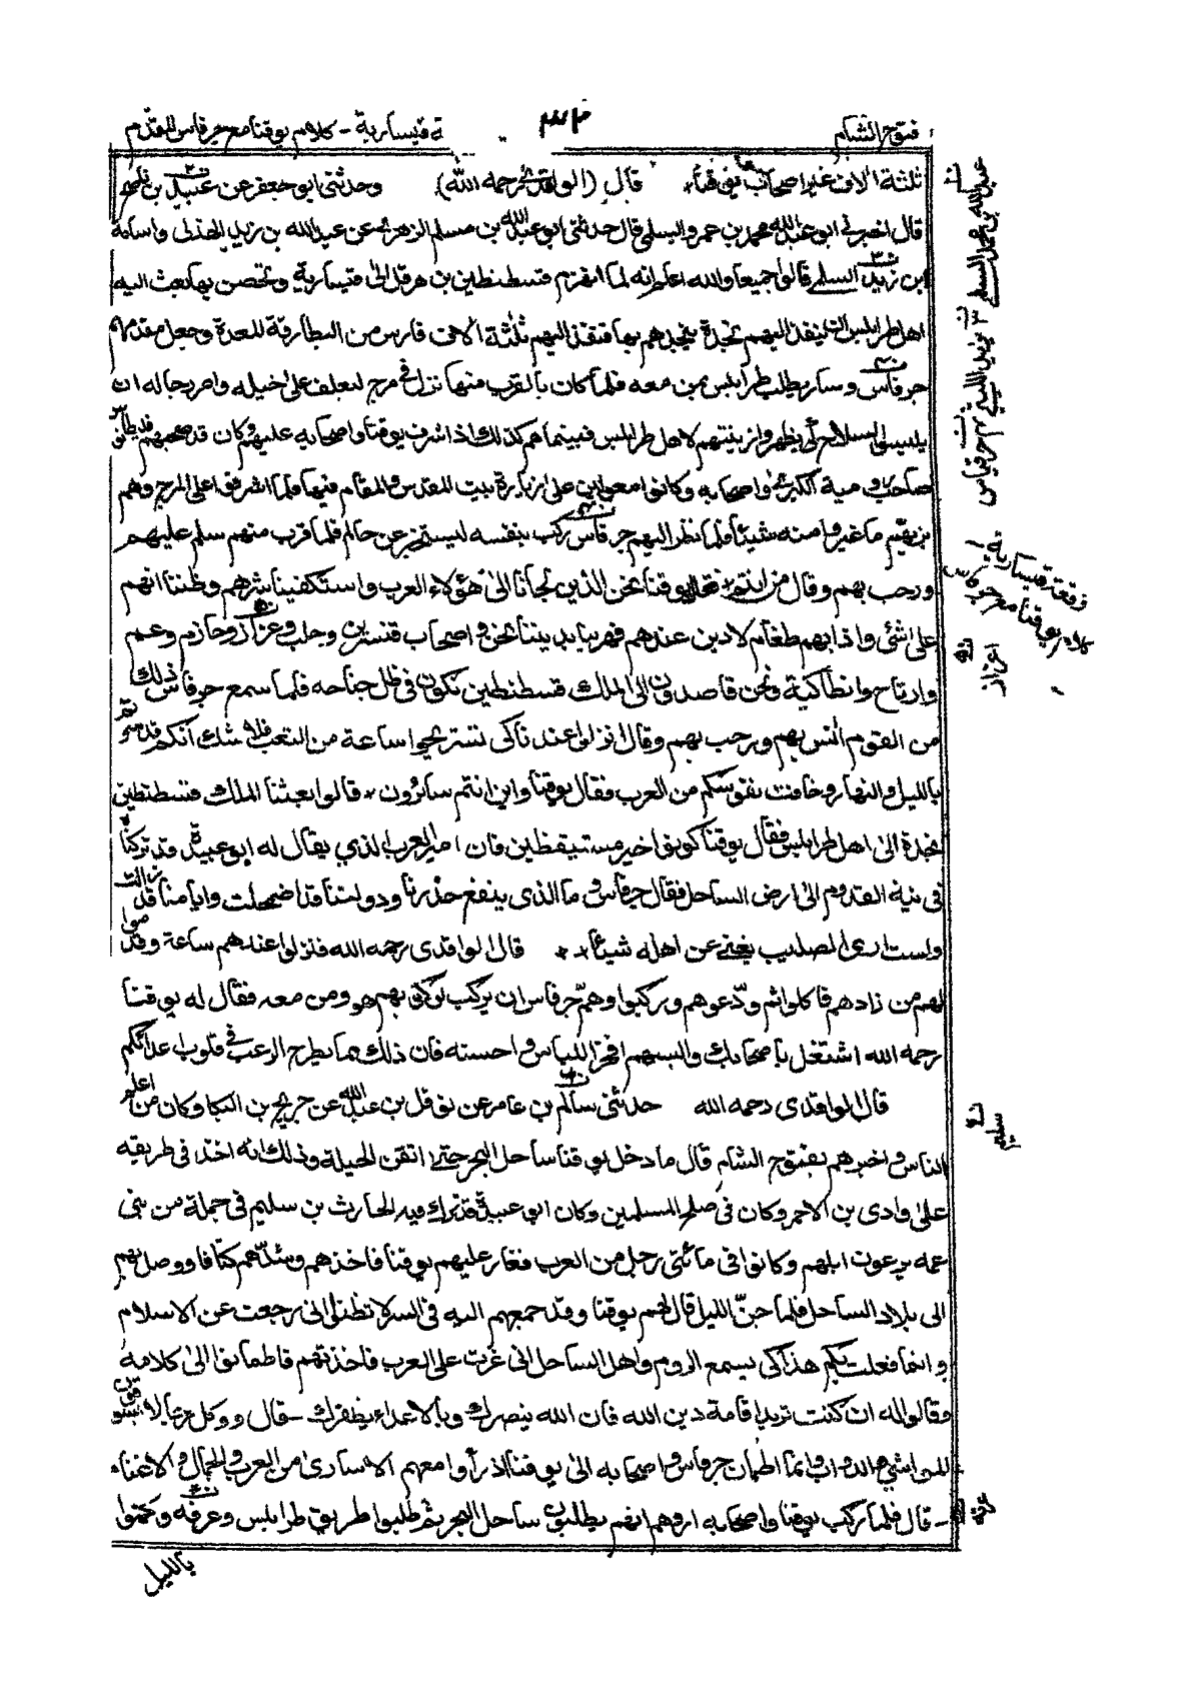 فتوح الشام
قيسارية - كلام يوقنا مع جرفاس المقدم
ثلثة الاف غير اصحاب يوقنا* قال (الواقدى رحمه الله) وحدثنى ابو جعفر عن عبيد بن
قال اخبرنى ابو عبد الله محمد بن عمرو السلمى قال حدثنى ابو عبد الله بن مسلم الزهرى عن عبد الله بن زيد الهذلى واسامة
ابن زيد السلمى قالوا جميعا والله اعلم انه لما انهزم قسطنطين بن هرقل الى قيسارية وتحصن بها بعث اليه
اهل طرابلس ان ينفذ اليهم نجدة ينجدهم بها فنفذ اليهم ثلثة الاف فارس من البطارقة للعدة وجعل مقدمهم
جرفاس وسار يطلب طرابلس بمن معه فلما كان بالقرب منها نزل فى مرج ليعلف على خيله وامر رجاله ان
يلبسوا السلاح لكى يظهروا زينتهم لاهل طرابلس فبينما هم كذلك اذ اشرف يوقنا واصحابه عليهم وكان قد صحبهم فليطانوس
صاحب رومية الكبرى واصحابه وكانوا معولين على زيارة بيت المقدس والمقام فيها فلما اشرفوا على المرج وهم
بزيهم ما غيروا منه شيئا فلما نظر اليهم جرفاس ركب بنفسه ليستخبر عن حالهم فلما قرب منهم سلم عليهم
ورحب بهم وقال من انتم* فقال يوقنا نحن الذين لجأنا الى هؤلاء العرب واستكفينا شرهم وظننا انهم
على شئ واذا بهم طغام لا دين عندهم فهربنا بديننا نحن واصحاب قنسرين وحلب وعزاز وحازم وعم
وارتاح وانطاكية ونحن قاصدون الى الملك قسطنطين نكون فى ظل جناحه فلما سمع جرفاس ذلك
من القوم انس بهم ورحب بهم وقال انزلوا عندنا كى تستريحوا ساعة من التعب فلا شك انكم قد سرتم
بالليل والنهار وخافت نفوسكم من العرب فقال يوقنا واين انتم سائرون* قالوا بعثنا الملك قسطنطين
نجدة الى اهل طرابلس فقال يوقنا كونوا خير مستيقظين فان امير العرب الذي يقال له ابو عبيدة قد تركناه
فى نية القدوم الى ارض الساحل فقال جرفاس وما الذى ينفع حذرنا ودولتنا قد اضمحلت وايامنا قد زالت
ولست ارى الصليب يغنى عن اهله شيئا** قال الواقدى رحمه الله فنزلوا عندهم ساعة وقدموا
لهم من زادهم فاكلوا ثم ودعوهم وركبوا وهم جرفاس ان يركب بهم هو ومن معه فقال له يوقنا
رحمه الله اشتغل باصحابك والبسهم افخر اللباس واحسنه فان ذلك مما يطرح الرعب فى قلوب اعدائكم
قال الواقدى رحمه الله حدثنى سالم بن عامر عن نوفل بن عبد الله عن جريج بن البكا وكان من اعلم
الناس واخبرهم بفتوح الشام قال ما دخل يوقنا ساحل البحر حتى اتقن الحيلة وذلك انه اخذ فى طريقه
على وادى بن الاحمر وكان فى صلح المسلمين وكان ابو عبيدة قد ترك فيه الحارث بن سليم فى جملة من بنى
عمه يرعون ابلهم وكانوا فى مائتى رجل من العرب فغار عليهم يوقنا فاخذهم وشدهم كتافا ووصل بهم
الى بلاد الساحل فلما جن الليل قال لهم يوقنا وقد جمعهم اليه فى السر لا تظنوا انى رجعت عن الاسلام
وانما فعلت بكم هذا كى يسمع الروم واهل الساحل انى غرت على العرب فاخذتهم فاطمأنوا الى كلامه
وقالوا له ان كنت تريد اقامة دين الله فان الله ينصرك وبالاعداء يظفرك - قال ووكل رجالا يسوقون
المواشي والدواب وانما اطمان جرفاس واصحابه الى يوقنا اذ رأوا معهم الاسارى من العرب والجمال والاغنام
- قال فلما ركب يوقنا واصحابه اروهم انهم يطلبون ساحل البحر ثم طلبوا طريق طرابلس وعرقه وكمنوا
بالليل
عبد الله بن محمد السلمى
٣ بن يزيد الليثى
جرقياس
وقعة قيسارية
كلام يوقنا مع جرفاس
اعزاز
سليم